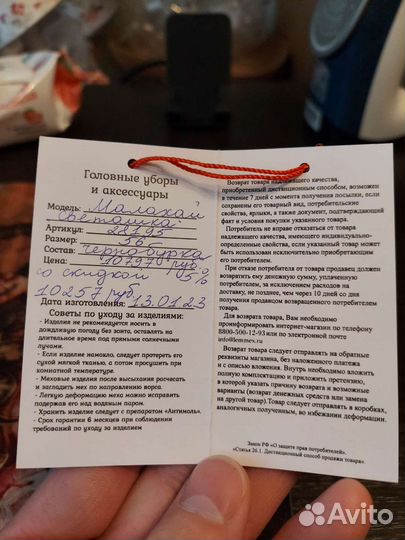 Головные уборы
и аксессуары
Модель: Малахай
Светашка
Артикул: 28195
Размер: 56
Состав: Чернобурка
Цена:
со скидкой
10257 руб
Дата изготовления: 13.01.23
Советы по уходу за изделиями:
- Изделия не рекомендуется носить в
дождливую погоду без зонта, оставлять на
длительное время под прямыми солнечными
лучами.
- Если изделие намокло, следует протереть его
сухой мягкой тканью, а потом просушить при
комнатной температуре.
- Меховые изделия после высыхания расчесать
и загладить мех по направлению ворса.
- Легкую деформацию меха можно исправить
подержав его над водяным паром.
- Хранить изделие следует с препаратом «Антимоль».
- Срок гарантии 6 месяцев при соблюдении
требований по уходу за изделием
Возврат товара надлежащего качества,
приобретенный дистанционным способом, возможен
в течение 7 дней с момента получения посылки, если
сохранены его товарный вид, потребительские
свойства, ярлыки, а также документ, подтверждающий
факт и условия покупки указанного товара.
Потребитель не вправе отказаться от товара
надлежащего качества, имеющего индивидуально-
определенные свойства, если указанный товар может
быть использован исключительно приобретающим
его потребителем.
При отказе потребителя от товара продавец должен
возвратить ему денежную сумму, уплаченную
потребителем, за исключением расходов на
доставку, не позднее, чем через 10 дней со дня
получения продавцом возвращенного потребителем
товара.
Для возврата товара, Вам необходимо
проинформировать интернет-магазин по телефону
8800-500-12-93 или по электронной почте
info@lemmex.ru
Возврат товара следует отправлять на обратные
реквизиты магазина, без наложенного платежа
и с описью вложения. Внутрь необходимо вложить
полную комплектацию и приложить претензию,
в которой указать причину возврата и возможные
варианты (возврат денежных средств или замена
на другой товар) Товар следует отправлять в коробках,
аналогичных полученным, во избежании деформации.
Закон РФ «О защите прав потребителей».
«Статья 26.1. Дистанционный способ продажи товара».
Avito